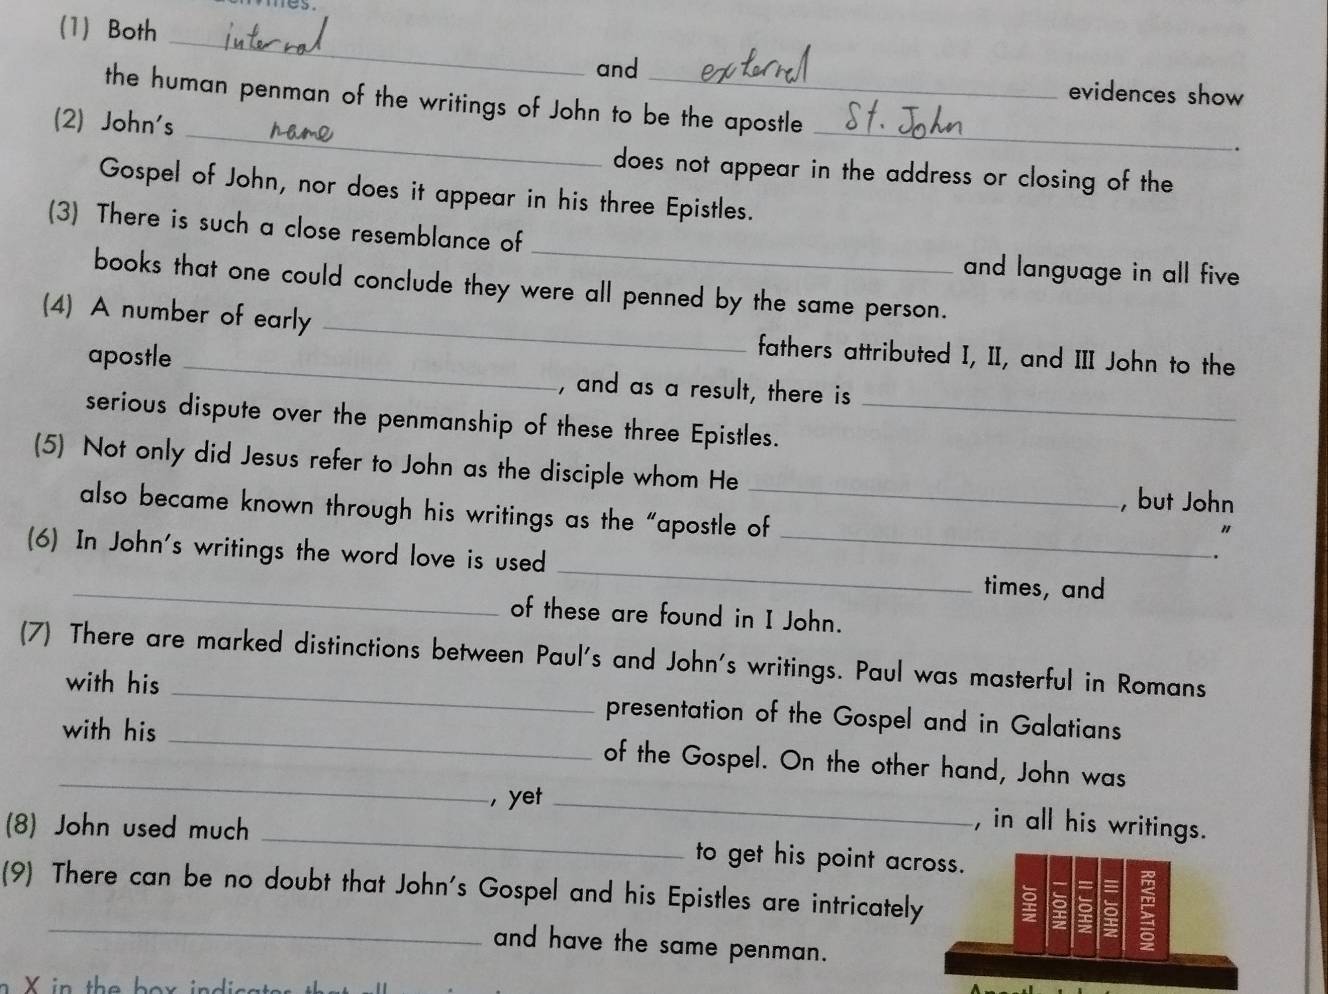 (1) Both internal and external evidences show
the human penman of the writings of John to be the apostle St. John.
(2) John's name does not appear in the address or closing of the
Gospel of John, nor does it appear in his three Epistles.
(3) There is such a close resemblance of ______ and language in all five
books that one could conclude they were all penned by the same person.
(4) A number of early ______ fathers attributed I, II, and III John to the
apostle ______, and as a result, there is ______
serious dispute over the penmanship of these three Epistles.
(5) Not only did Jesus refer to John as the disciple whom He ______, but John
also became known through his writings as the "apostle of ______."
(6) In John's writings the word love is used ______ times, and
______ of these are found in I John.
(7) There are marked distinctions between Paul's and John's writings. Paul was masterful in Romans
with his ______ presentation of the Gospel and in Galatians
with his ______ of the Gospel. On the other hand, John was
______, yet ______, in all his writings.
(8) John used much ______ to get his point across.
(9) There can be no doubt that John's Gospel and his Epistles are intricately
______ and have the same penman.
JOHN
I JOHN
II JOHN
III JOHN
REVELATION
X in the box